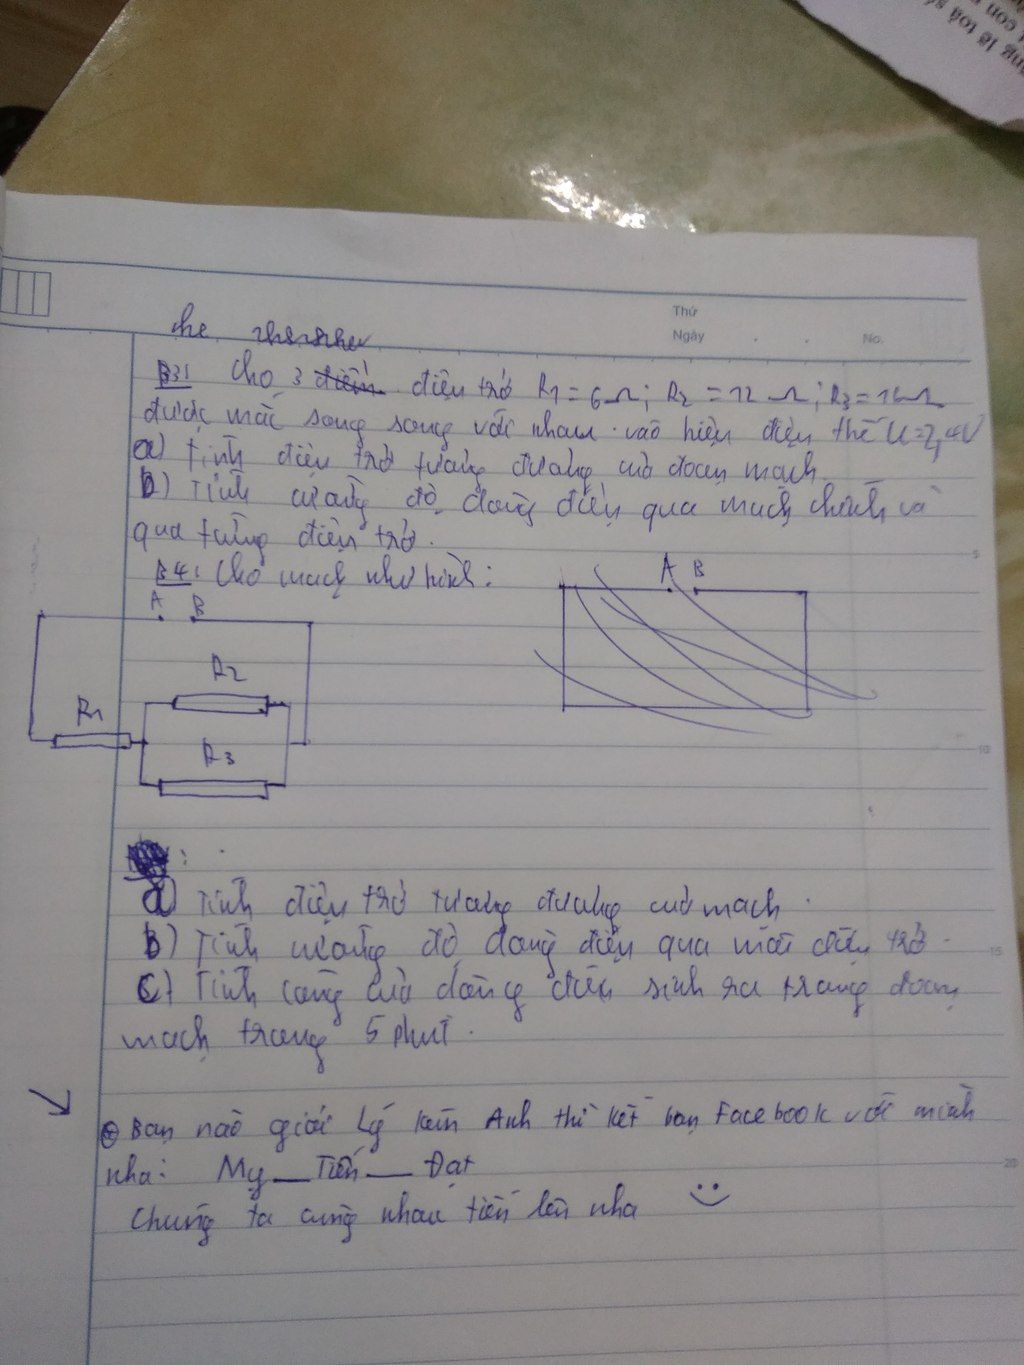 ng là toà số
con
Thứ
Ngày
No.
B3: Cho 3 điện trở R1 = 6Ω; R2 = 12 Ω; R3 = 16Ω
được mắc song song với nhau vào hiệu điện thế U=2,4V
a) Tính điện trở tương đương của đoạn mạch
b) Tính cường độ dòng điện qua mạch chính và
qua từng điện trở.
B4: Cho mạch như hình:
A B
A B
R2
R1
R3
5
10
a) Tính điện trở tương đương của mạch.
b) Tính cường độ dòng điện qua mỗi điện trở.
15
c) Tính công của dòng điện sinh ra trong đoạn
mạch trong 5 phút.
Bạn nào giỏi Lý kém Anh thì kết bạn Facebook với mình
nha: My_Tiến_Đạt
20
Chúng ta cùng nhau tiến lên nha